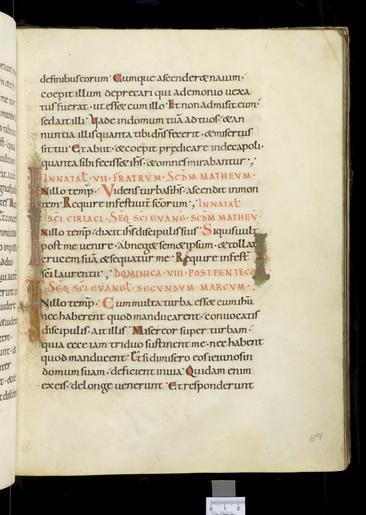 definibus eorum. Cumque ascenderet navim.
coepit illum deprecari qui a demonio vexa
tus fuerat. ut esset cum illo. Et non admisit eum.
sed ait illi. Vade in domum tuā ad tuos. & an
nuntia illis quanta tibi dn̄s fecerit. & misertus
sit tui. Et abiit. & coepit predicare in decapoli.
quanta sibi fecisset ih̄s. & omnes mirabantur.
IN NATAƚ. VII. FRATRVM. SCD̄M MATHEVM.
IN illo temp̄. Videns turbas ih̄s. ascendit in mon
tem. Require in festiuit̄. scōrum. IN NATAƚ
SC̄I CIRIACI. SEQ̄ SC̄I EVANḠ. SCD̄M MATHEV̄.
IN illo temp̄. dixit ih̄s discipulis suis. Si quis uult
post me uenire. abneget semetipsum. & tollat
crucem suā. & sequatur me. Require in fest̄
sc̄i laurentii. DOMINICA. VIII. POST PENTECO
SEQ̄ SC̄I EVANGƚ. SECVNDVM MARCVM.
IN illo temp̄. Cum multa turba esset cum ih̄u
nec haberent quod manducarent. conuocatis
discipulis. ait illis. Misereor super turbam.
quia ecce iam triduo sustinent me. nec habent
quod manducent. Et si dimisero eos ieiunos in
domum suam. deficient in uia. Quidam enim
ex eis. de longe uenerunt. Et responderunt
104